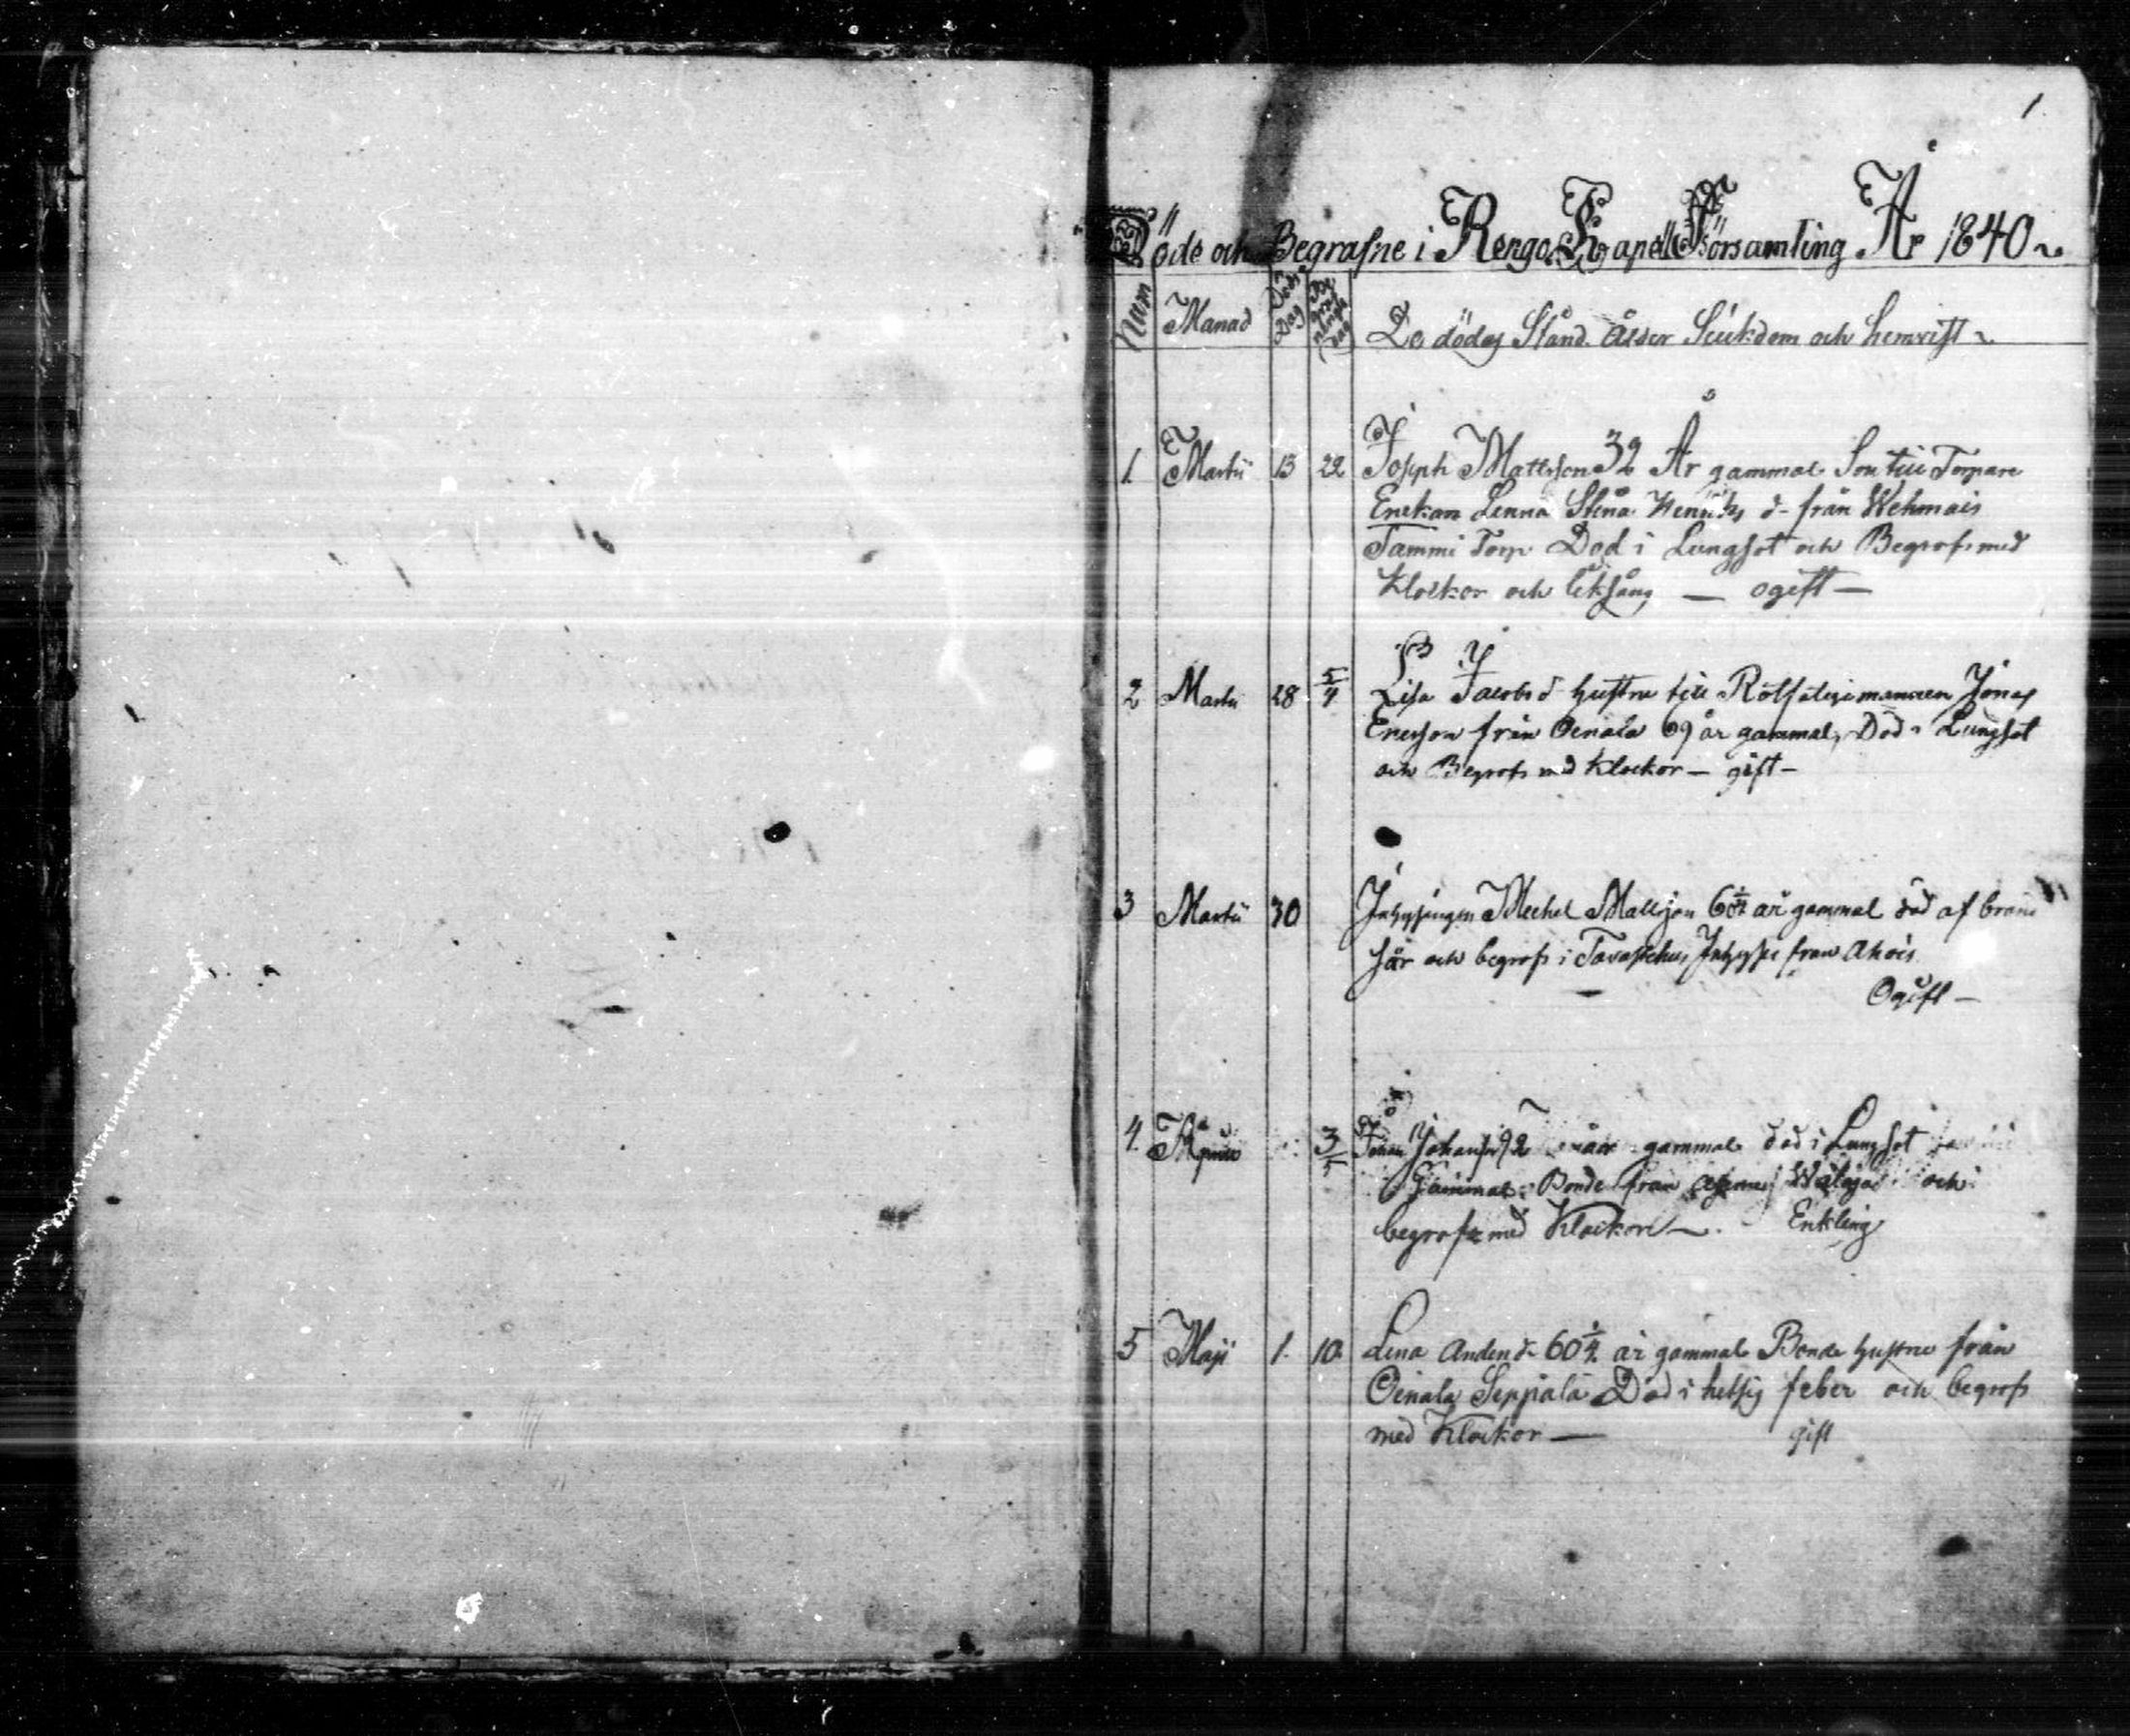 1.
Döde och Begrafne i Rengo Kapell Församling År 1840
Num Månad Döds Dag Begrafnings dag De dödas Stånd Ålder Siukdom och hemvist
1. Martii 13 22 Joseph Mattsson 32 År gammal Son till Torpare
Enckan Lenna Stina Henriks d- från Wehmais
Tammi Torp Död i Lungsot och Begrofs med
Klockor och liksång — ogift —
2 Martii 28 5/4 Lisa Jacobs d hustru till Jonas
Ericsson från Oenala 69 år gammal, Död i Lungsot
och Begrofs med Klockor — gift —
3 Martii 30 Inhysingen Michel Mattsson år gammal död af brand
sår och begrofs i Tavastehus Inhyses från Ahois
Ogift —
4. 3/5 Johan Johansson 92 gammal död i Lungsot
Gammal Bonde från och
begrofs med Klockor — Enkling
5 Maji 1. 10. Lena Anders d. 60 1/4 år gammal Bonde hustru från
Oinala Seppälä Död i hetsig feber och begrofs
med Klockor — gift